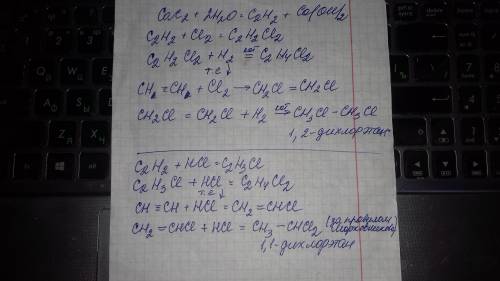 CaC2 + 2H2O = C2H2 + Ca(OH)2
C2H2 + Cl2 = C2H2Cl2
C2H2Cl2 + H2 кат= C2H4Cl2
т.е ↓
CH ≡ CH + Cl2 → CH2Cl = CH2Cl
CH2Cl = CH2Cl + H2 кат→ CH3Cl - CH3Cl
1,2-дихлорэтан
C2H2 + HCl = C2H3Cl
C2H3Cl + HCl = C2H4Cl2
т.е ↓
CH ≡ CH + HCl = CH2 = CHCl
CH2 = CHCl + HCl = CH3 - CHCl2 (за правилом Марковникова)
1,1-дихлорэтан